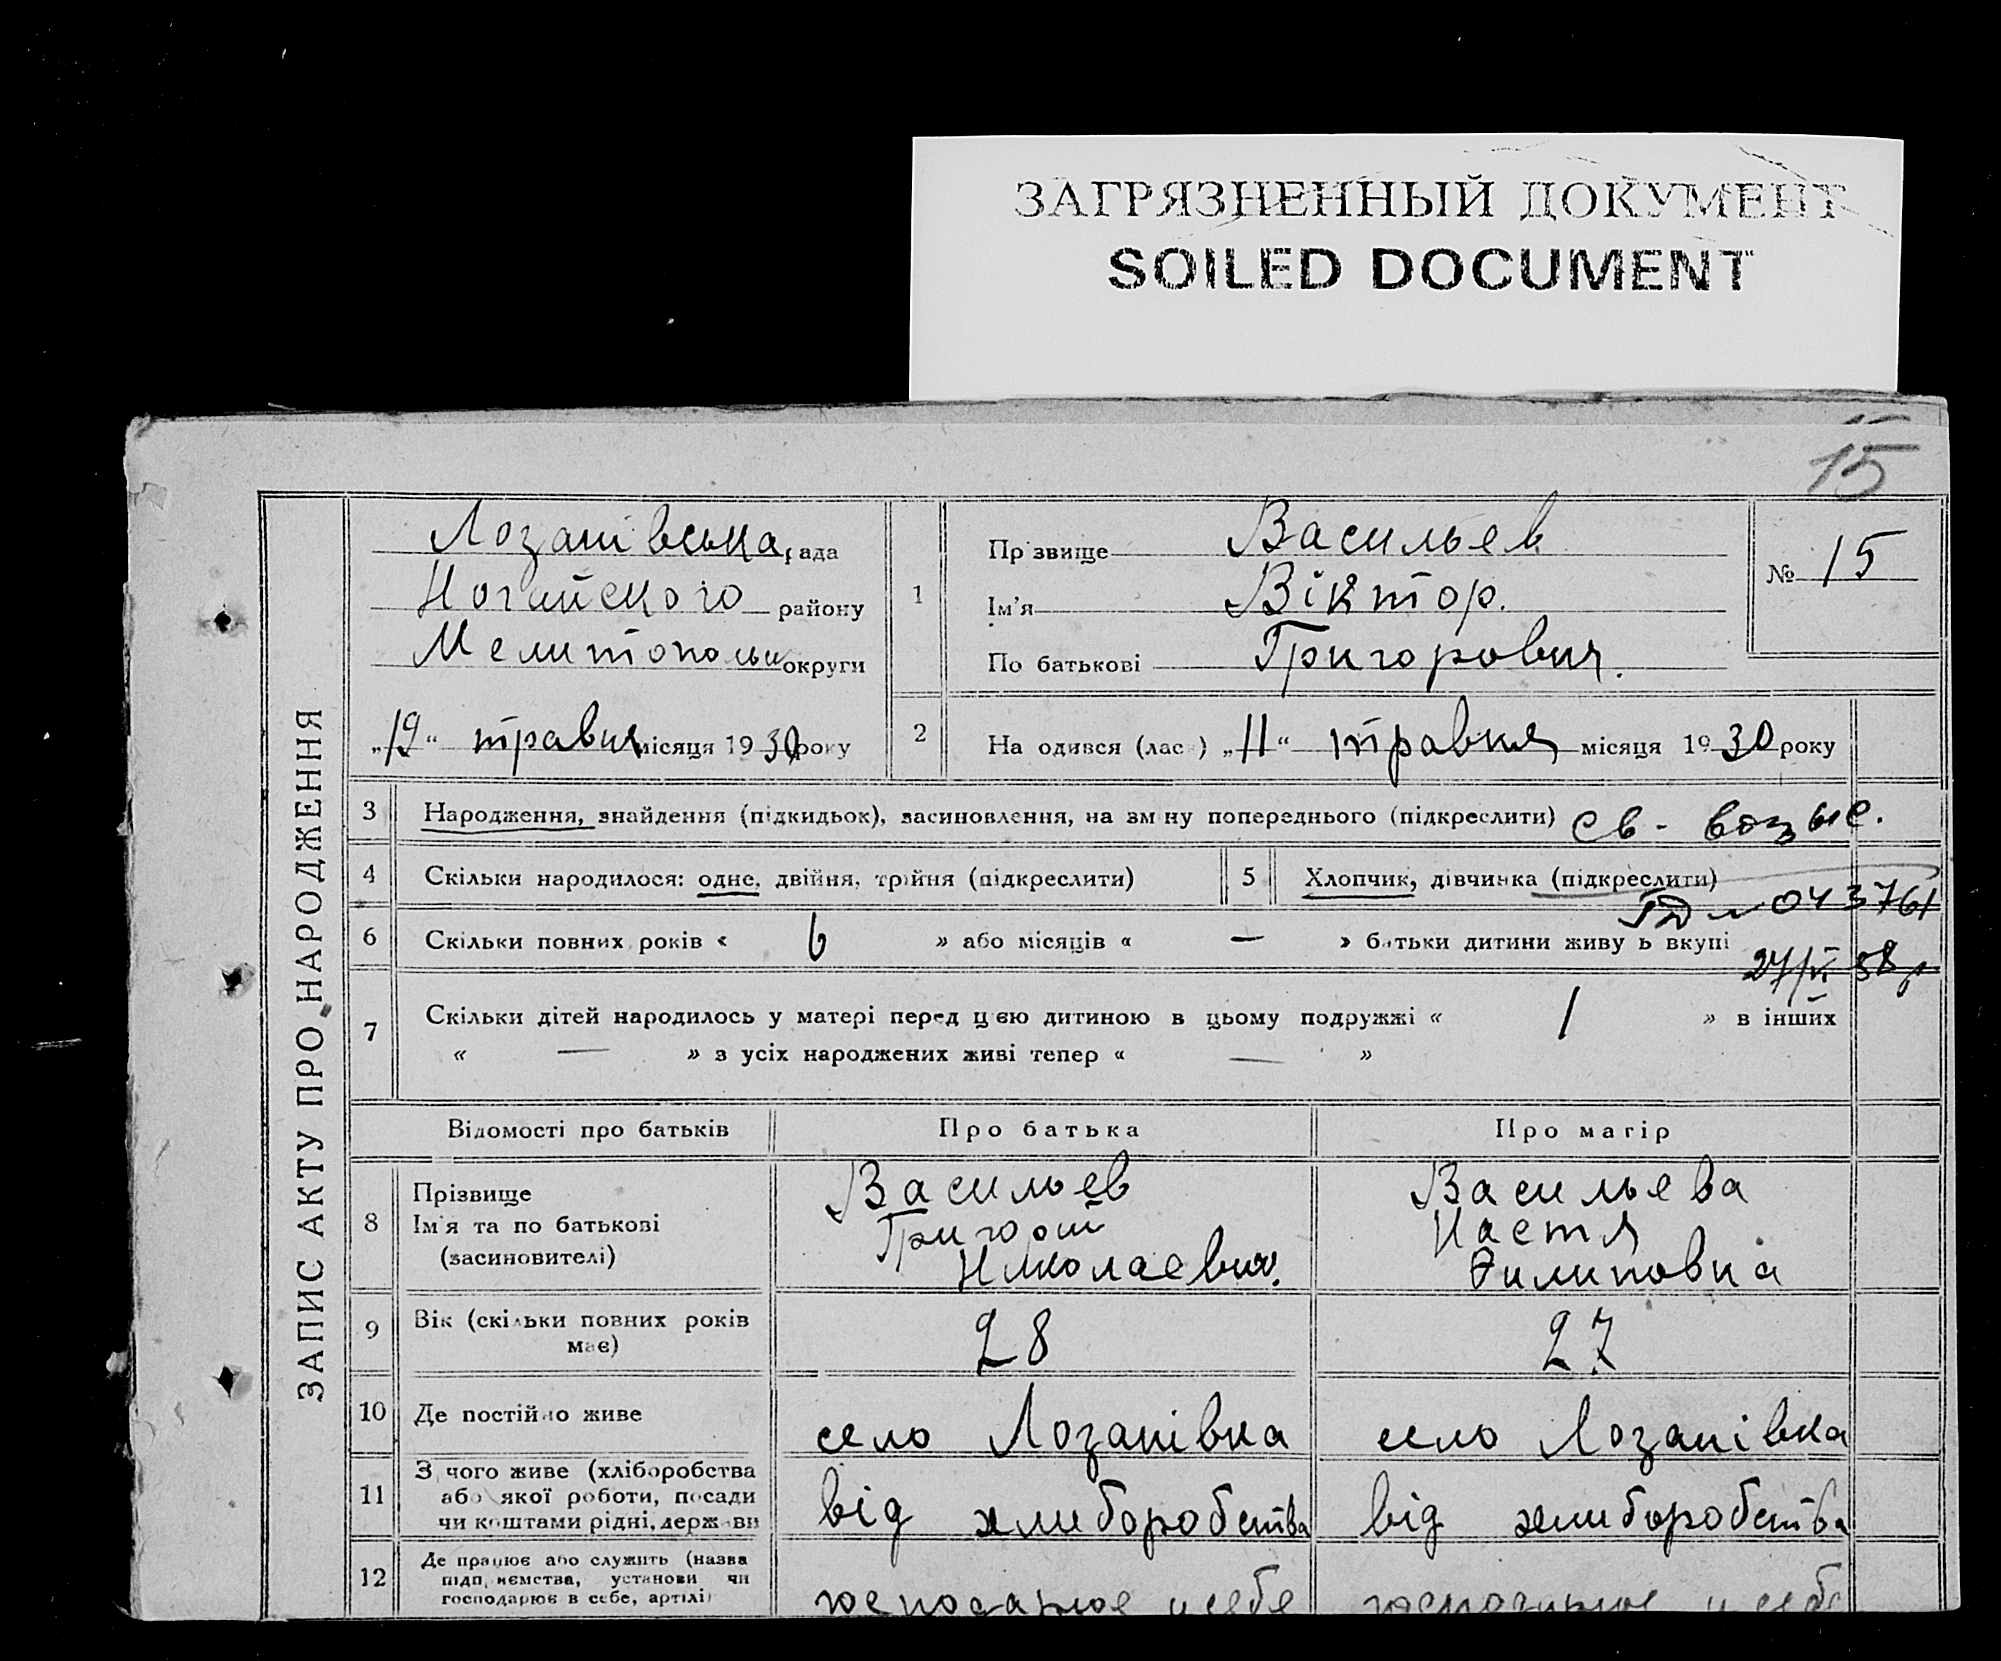 ЗАГРЯЗНЕННЫЙ ДОКУМЕНТ
SOILED DOCUMENT
15
ЗАПИС АКТУ ПРО НАРОДЖЕННЯ
Лозанівська рада
Ногайського району
Мелитопольи округи
„19“ травня місяця 1930 року
1
Прізвище Васильев
Ім'я Віктор.
По батькові Григорович.
№ 15
2
На одився (лас ) „11“ травня місяця 1930 року
3 Народження, знайдення (підкидьок), засиновлення, на зм ну попереднього (підкреслити) св-
4 Скільки народилося: одне, двійня, трійня (підкреслити)
5 Хлопчик, дівчинка (підкреслити)
043761
6 Скільки повних років « 6 » або місяців « — » батьки дитини живу ь вкупі
27/VI 58 р
7 Скільки дітей народилось у матері перед цією дитиною в цьому подружжі « 1 » в інших
« — » з усіх народжених живі тепер « — »
Відомості про батьків Про батька Про матір
8 Прізвище Васильев Васильева
Ім'я та по батькові Григорій Настя
(засиновителі) Николаевич. Филиповна
9 Вік (скільки повних років має) 28 27
10 Де постійно живе село Лозанівка село Лозанівка
11 З чого живе (хліборобства
або якої роботи, посади
чи коштами рідні, держави від хлиборобства від хлиборобства
12 Де працює або служить (назва
підприємства, установи чи
господарює в себе, артілі) господарюе у себе господарюе у себе